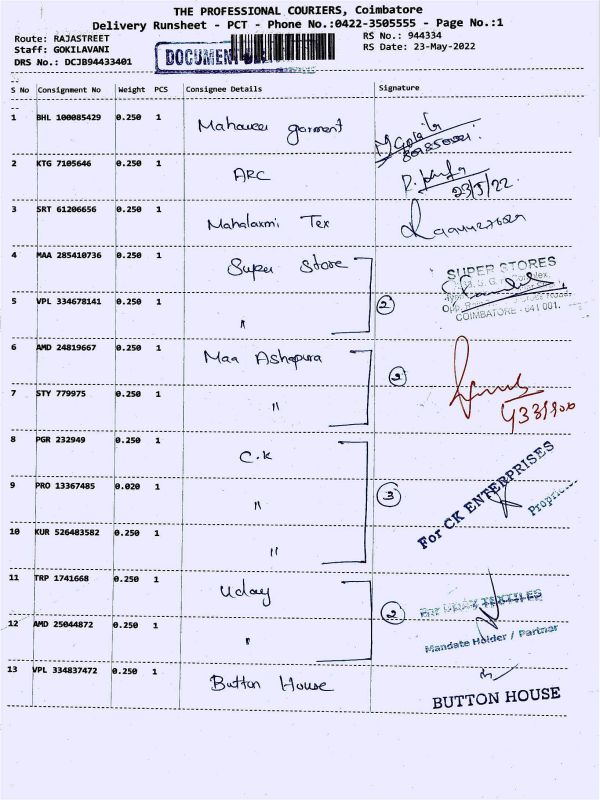 THE PROFESSIONAL COURIERS, Coimbatore
Delivery Runsheet - PCT - Phone No.:0422-3505555 - Page No.:1
Route: RAJASTREET RS No.: 944334
Staff: GOKILAVANI RS Date: 23-May-2022
DRS No.: DCJB94433401 DOCUMEN
S No Consignment No Weight PCS Consignee Details Signature
1 BHL 100085429 0.250 1 Mahaveer garment
2 KTG 7105646 0.250 1 ARC
23/5/22.
3 SRT 61206656 0.250 1 Mahalaxmi Tex
4 MAA 285410736 0.250 1 Super Store
SUPER STORES
5 VPL 334678141 0.250 1 " 2
COIMBATORE - 641 001.
6 AMD 24819667 0.250 1 Maa Ashapura
2
7 STY 779975 0.250 1 "
8 PGR 232949 0.250 1 C.K
9 PRO 13367485 0.020 1 " 3 For CK ENTERPRISES
Proprietor
10 KUR 526483582 0.250 1 "
11 TRP 1741668 0.250 1 Uday
TEXTILES
12 AMD 25044872 0.250 1 " 2
Mandate Holder / Partner
13 VPL 334837472 0.250 1 Button House
BUTTON HOUSE